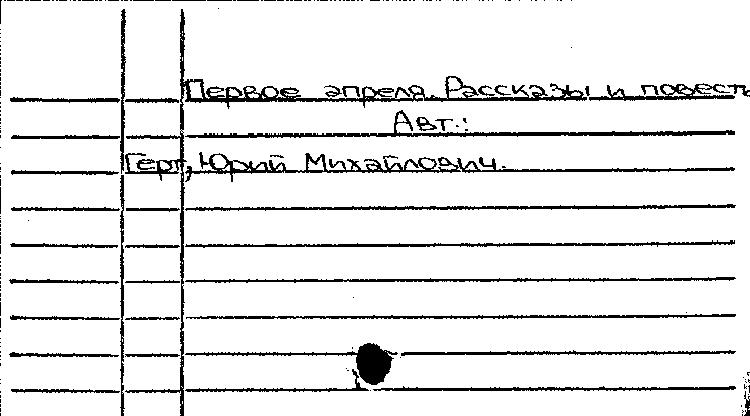 Первое апреля. Рассказы и повесть
Авт.:
Герт, Юрий Михайлович.